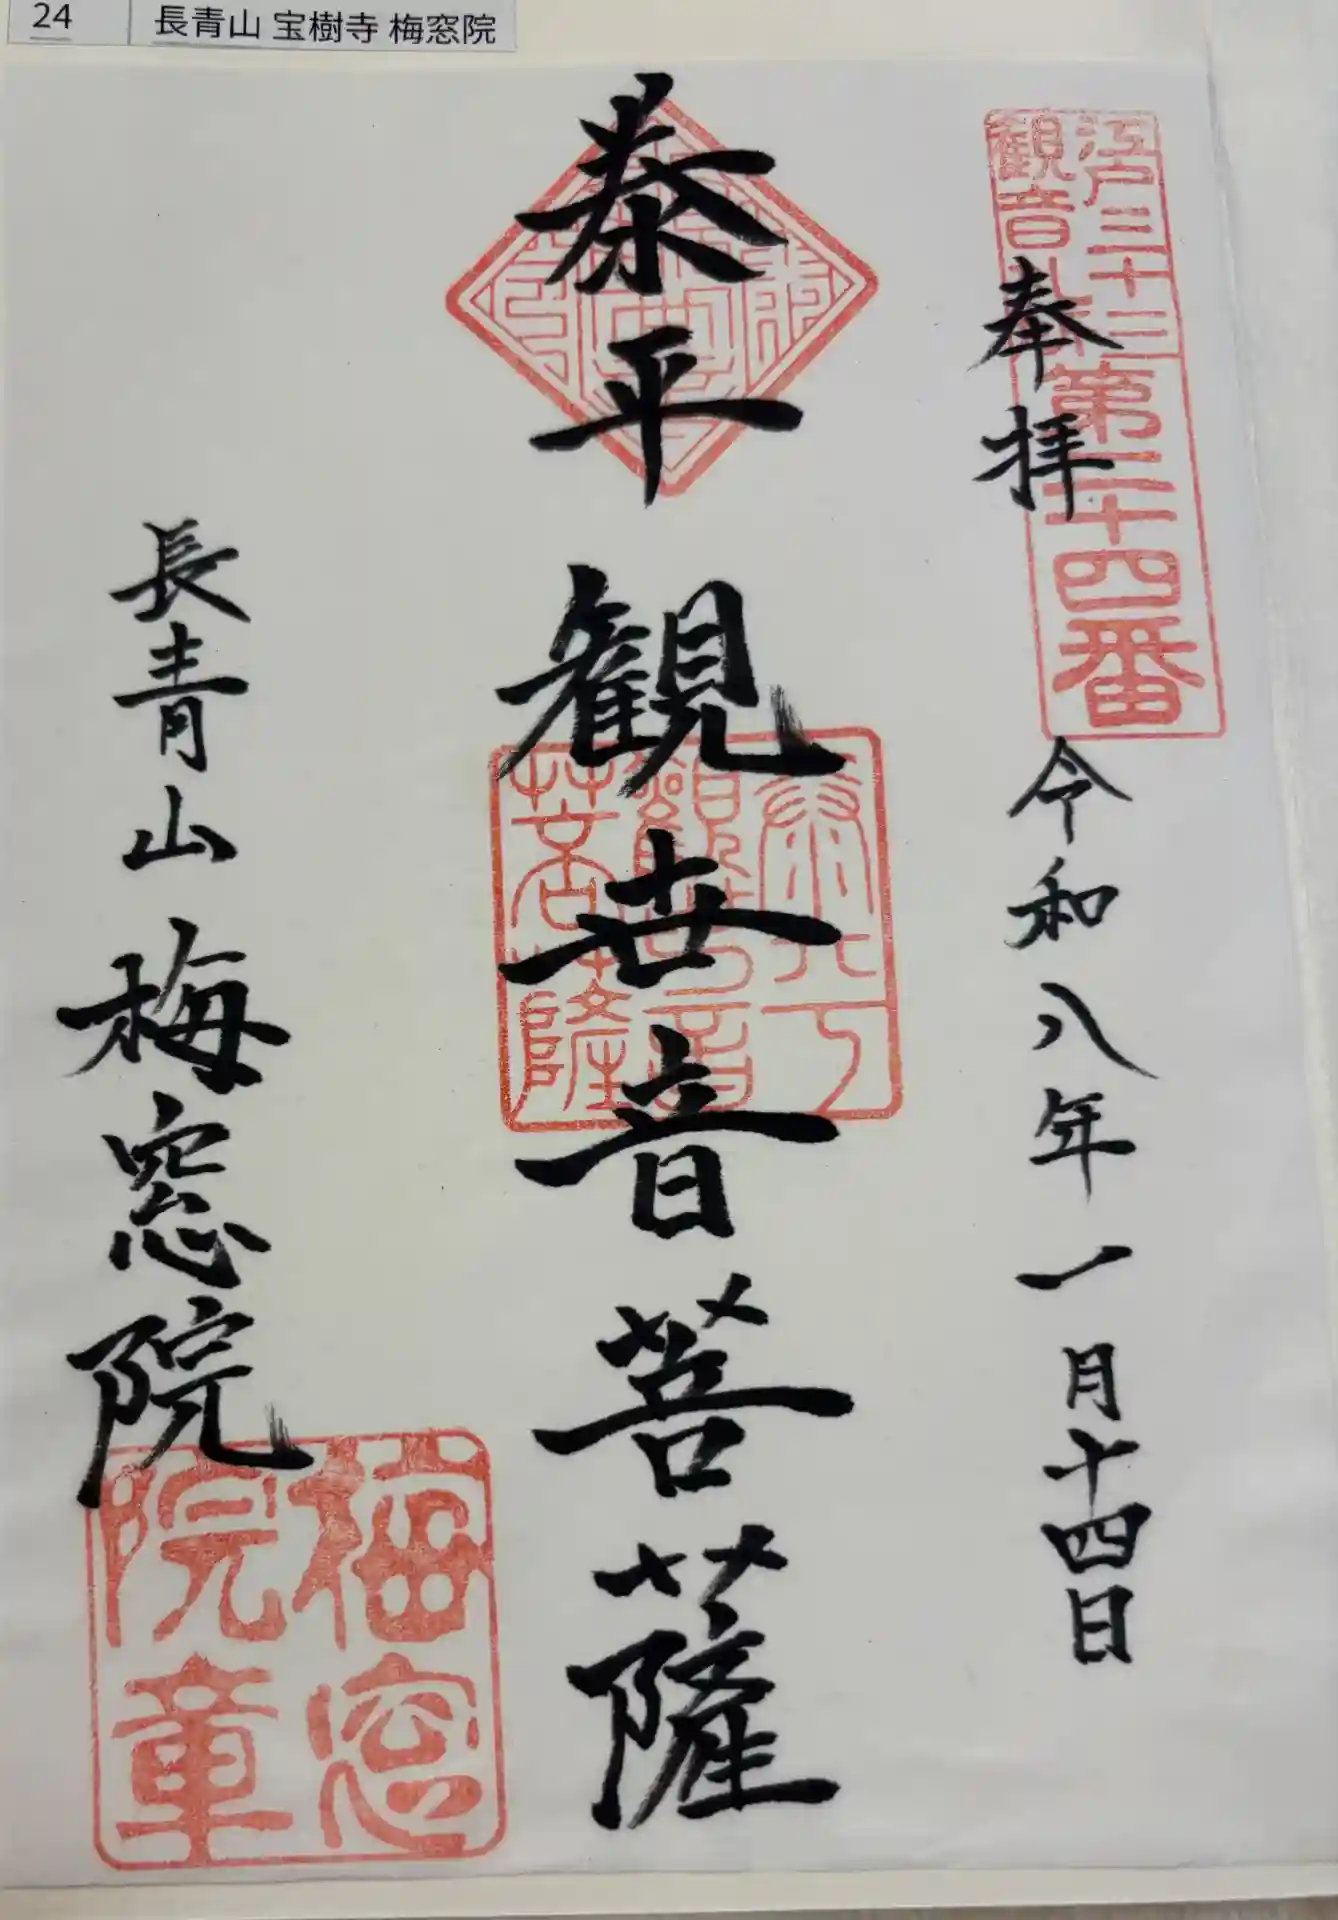 24
長青山 宝樹寺 梅窓院
江戸三十三
観音札所
第二十四番
奉拝
令和八年一月十四日
泰平観世音菩薩
泰平
観世音
菩薩
長青山 梅窓院
梅窓
院章